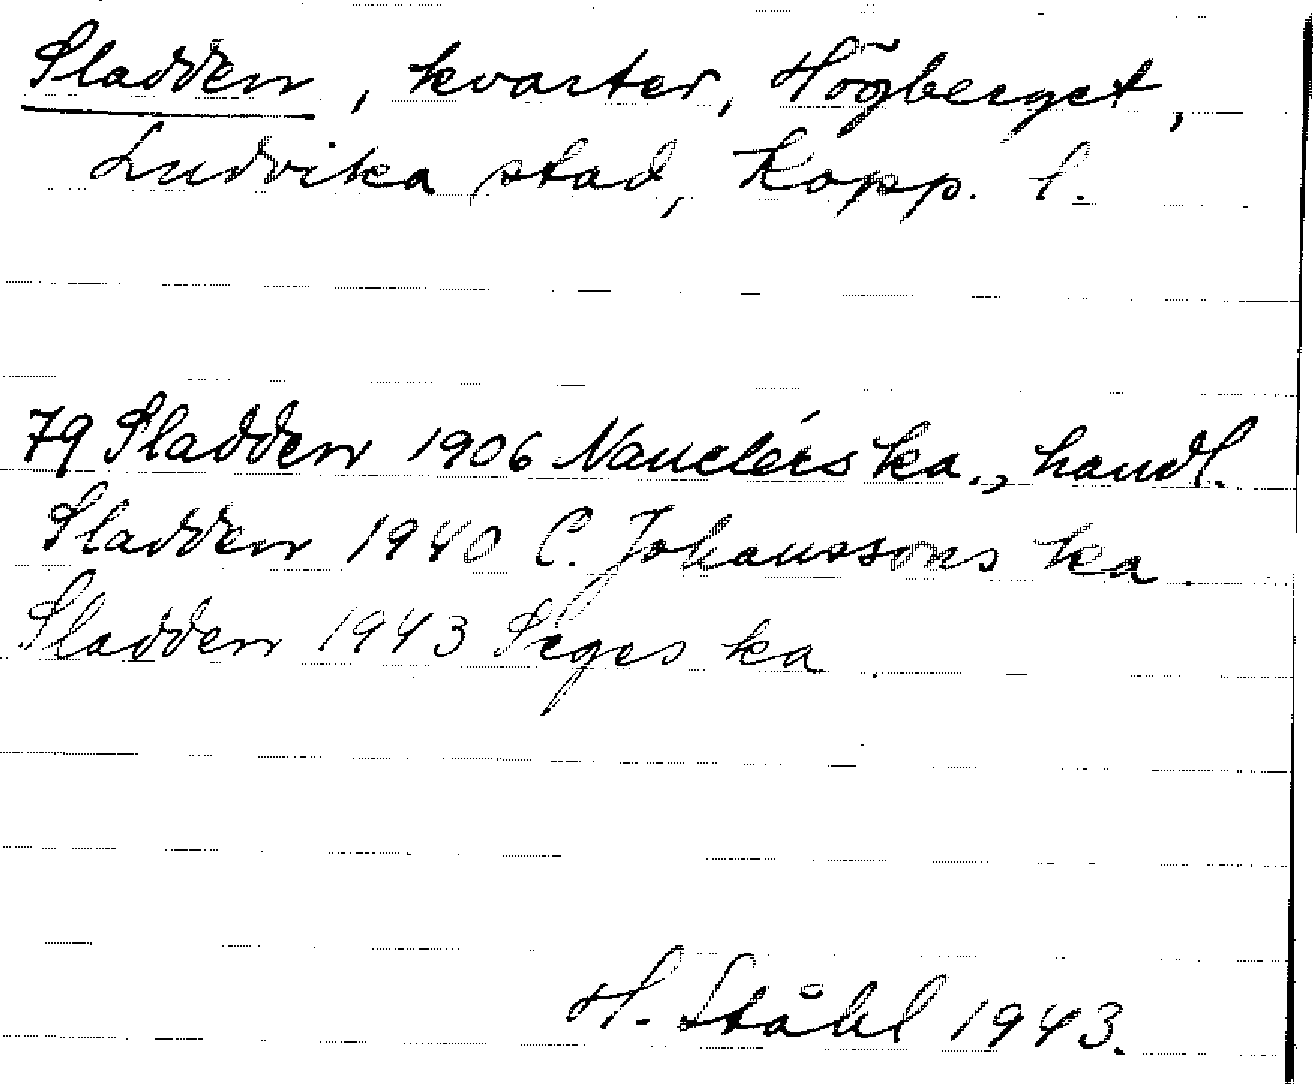 Sladden, kvarter, Högberget,
Ludvika stad, Kopp. l.
79 Sladden 1906 Nauclérs ka., handl.
Sladden 1940 C. Johanssons ka.
Sladden 1943 Seges ka.
H. Ståhl 1943.